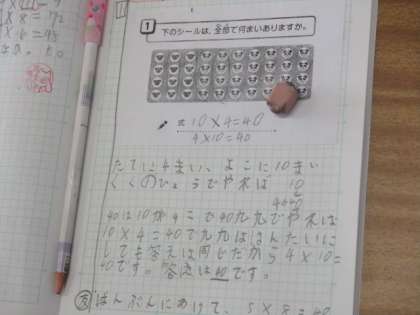 ×8=72
1
下のシールは、全部で何まいありますか。
式 10×4=40
4×10=40
たてに4まい、よこに10まい
くくのひょうでやれば 10
40は10が4こで40九九でやれば
10×4=40で九九ははんたいに
しても答えは同じだから4×10=
40です。答えは40です。
友 はんぶんにわけて、5×8=40